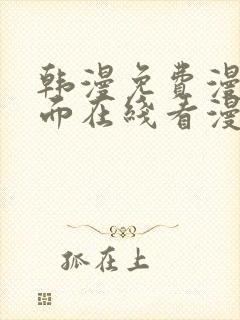 韩漫免费漫
而在线看漫
孤在上